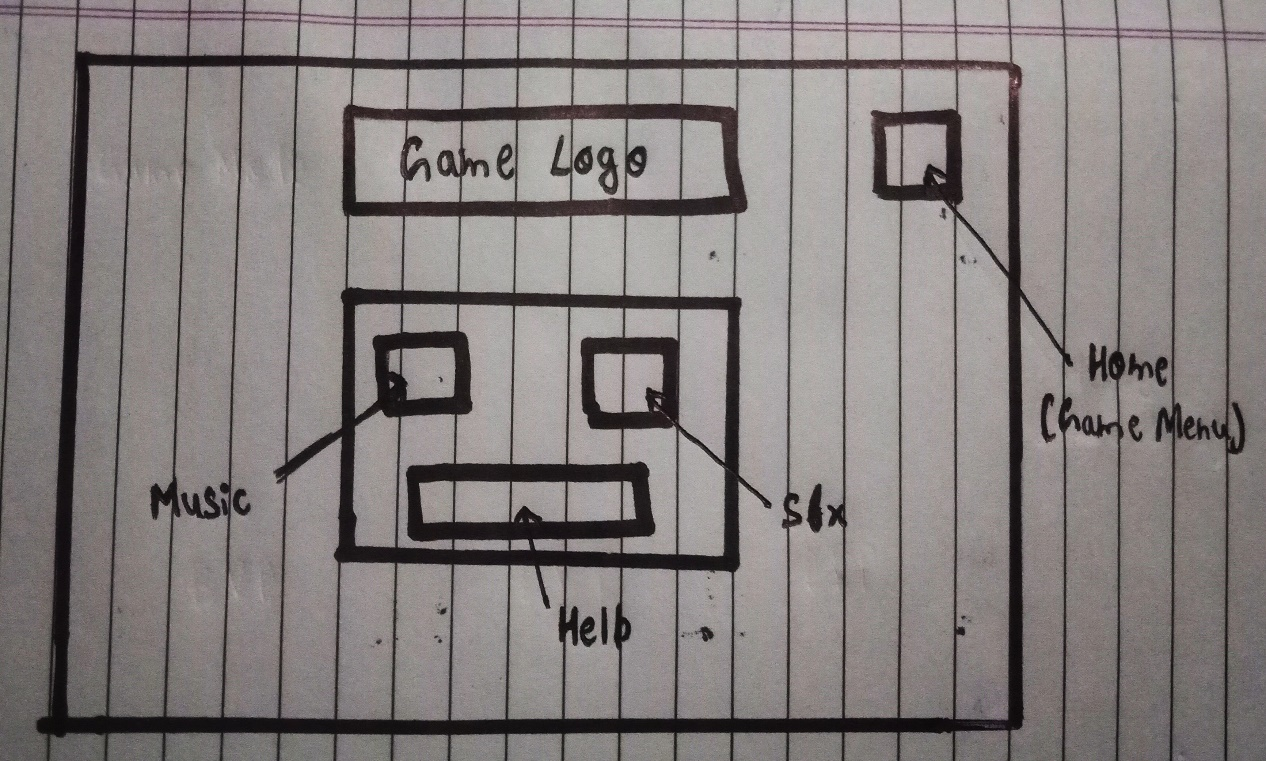 Game Logo
Home
(Game Menu)
Music
Sfx
Help